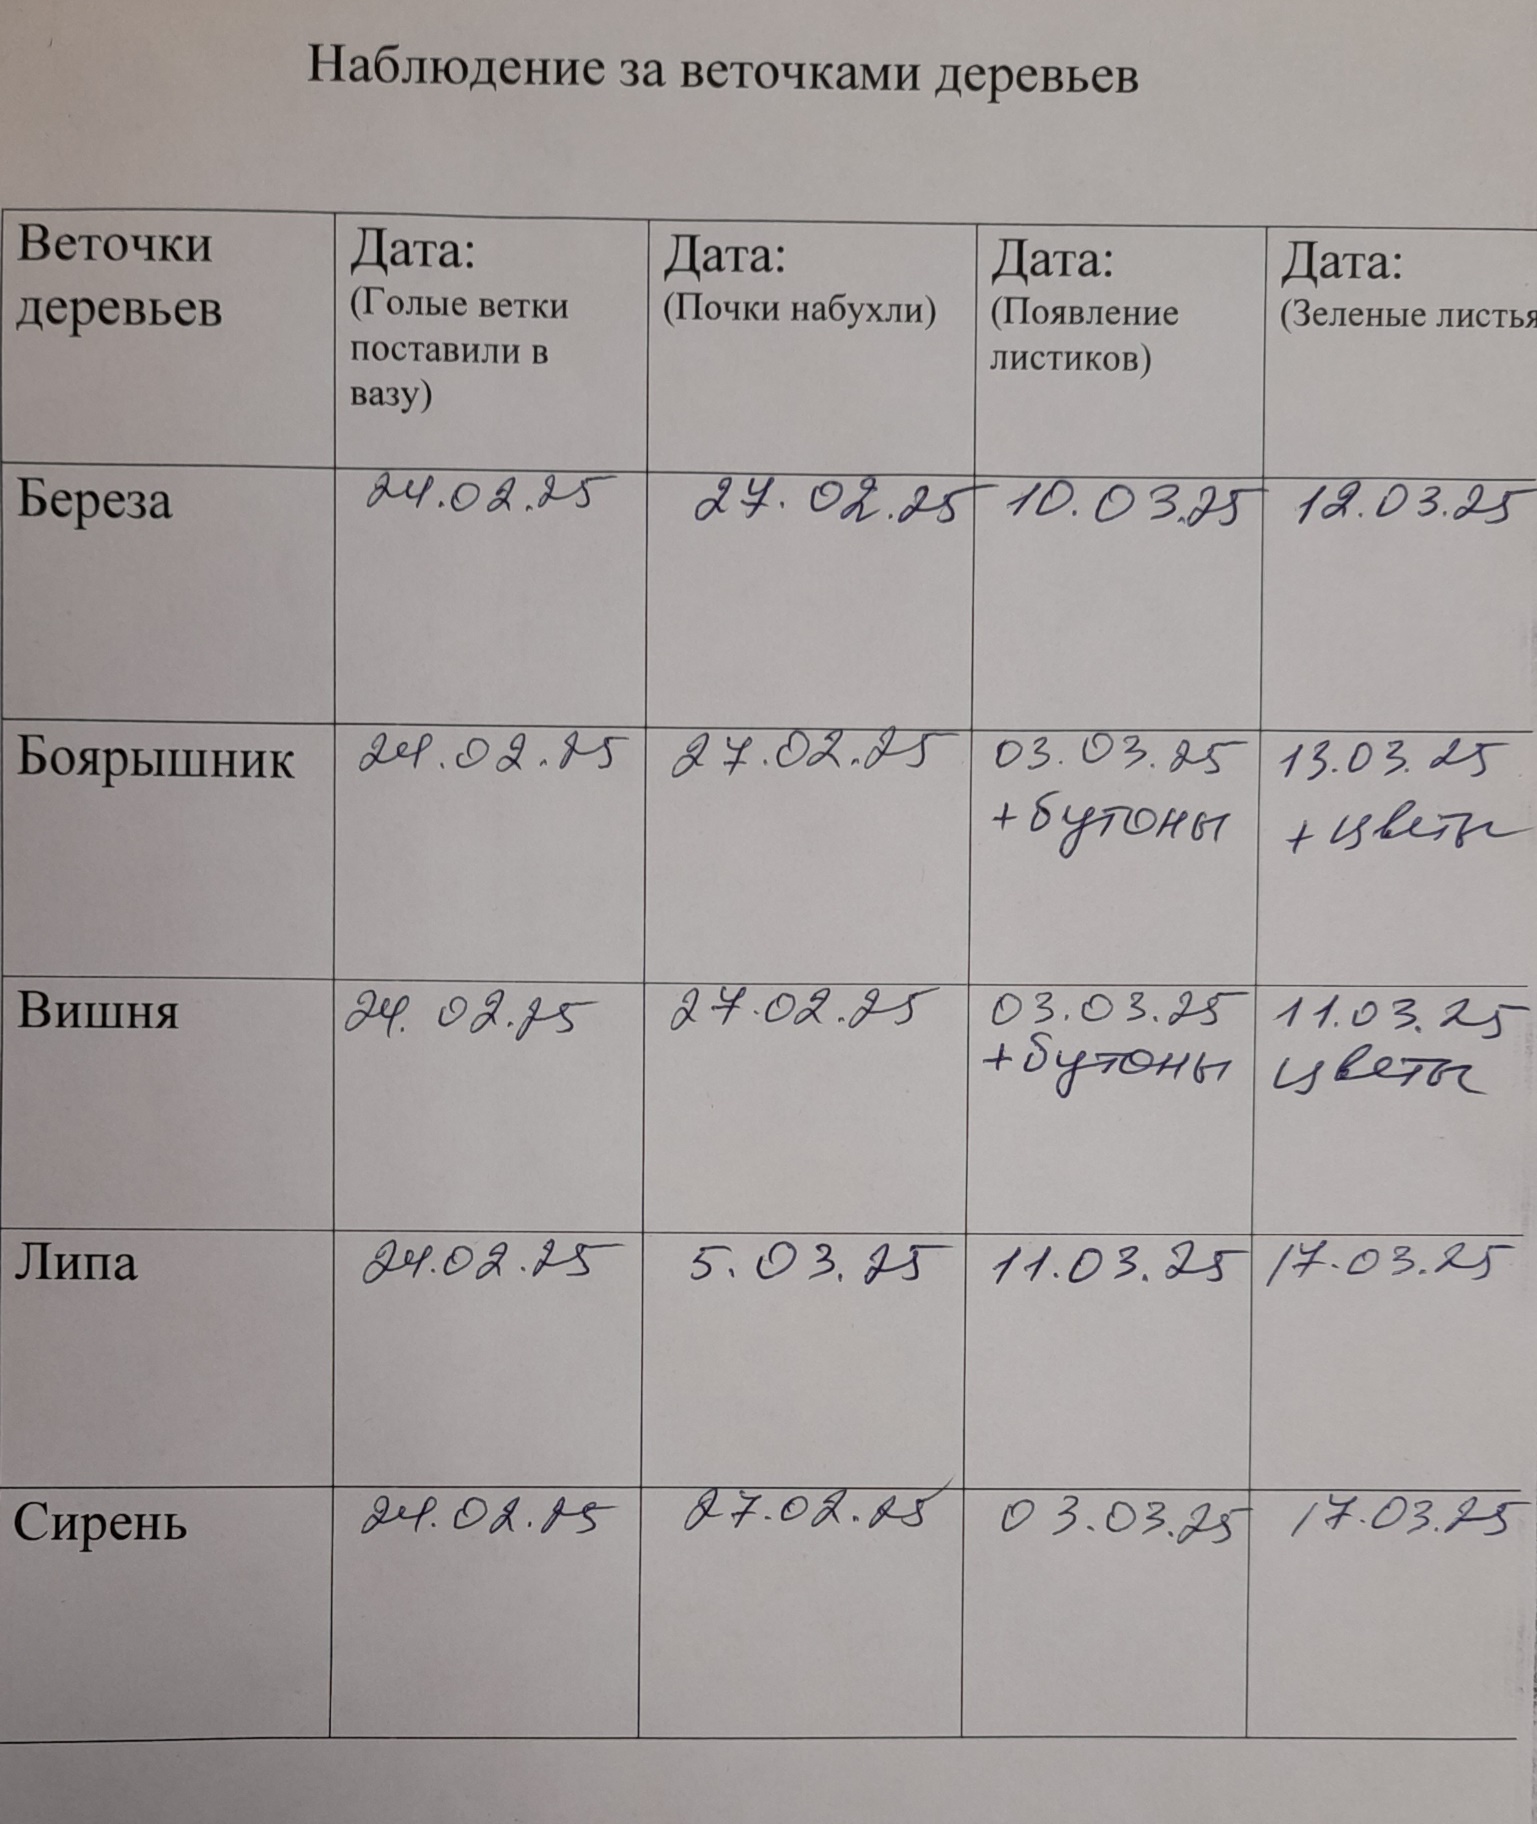 Наблюдение за веточками деревьев
Веточки деревьев
Дата:
(Голые ветки
поставили в
вазу)
Дата:
(Почки набухли)
Дата:
(Появление
листиков)
Дата:
(Зеленые листья
Береза 24.02.25 27.02.25 10.03.25 12.03.25
Боярышник 24.02.25 27.02.25 03.03.25 13.03.25
+бутоны +цветы
Вишня 24.02.25 27.02.25 03.03.25 11.03.25
+бутоны цветы
Липа 24.02.25 5.03.25 11.03.25 17.03.25
Сирень 24.02.25 27.02.25 03.03.25 17.03.25